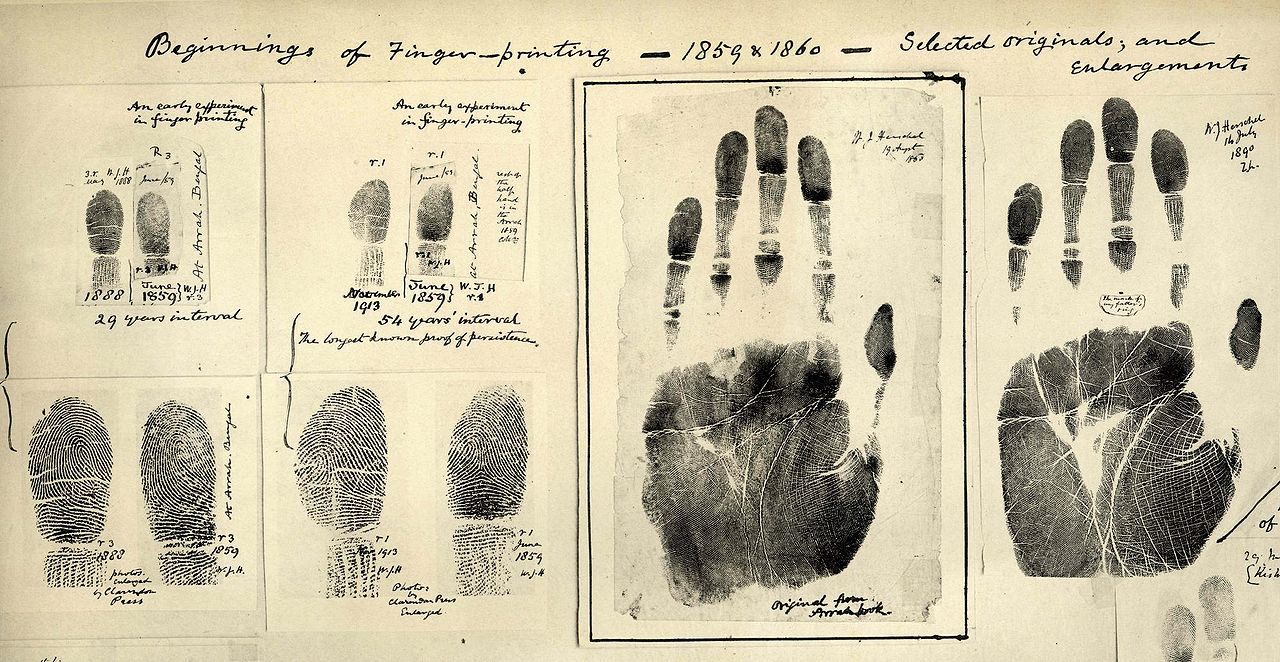 Beginnings of Finger-printing — 1859 & 1860 — Selected originals; and
Enlargements
An early experiment
in finger printing
R.3
W.J.H
1888
June/59
At Arrah. Bengal
r.3 W.J.H
1888
June
1859
W.J.H
r.3
29 years interval
An early experiment
in finger-printing
r.1
r.1
June/59
at Arrah, Bengal
rest of
the
hand
is in
the
Arrah
1859
r.1
W.J.H
November
1913
June
1859
W.J.H
r.1
54 years' interval
The longest known proof of persistence.
r 3
1888
photos.
enlarged
by Clarendon
Press
At Arrah Bengal
r 3
1859
W.J.H.
r 1
1913
W.J.H
Photos
by
Clarendon Press
Enlarged
r 1
June
1859
W.J.H
W. J. Herschel
Original from
Arrah book.
W.J Herschel
July
1890
The mark of
my father's
ring
of